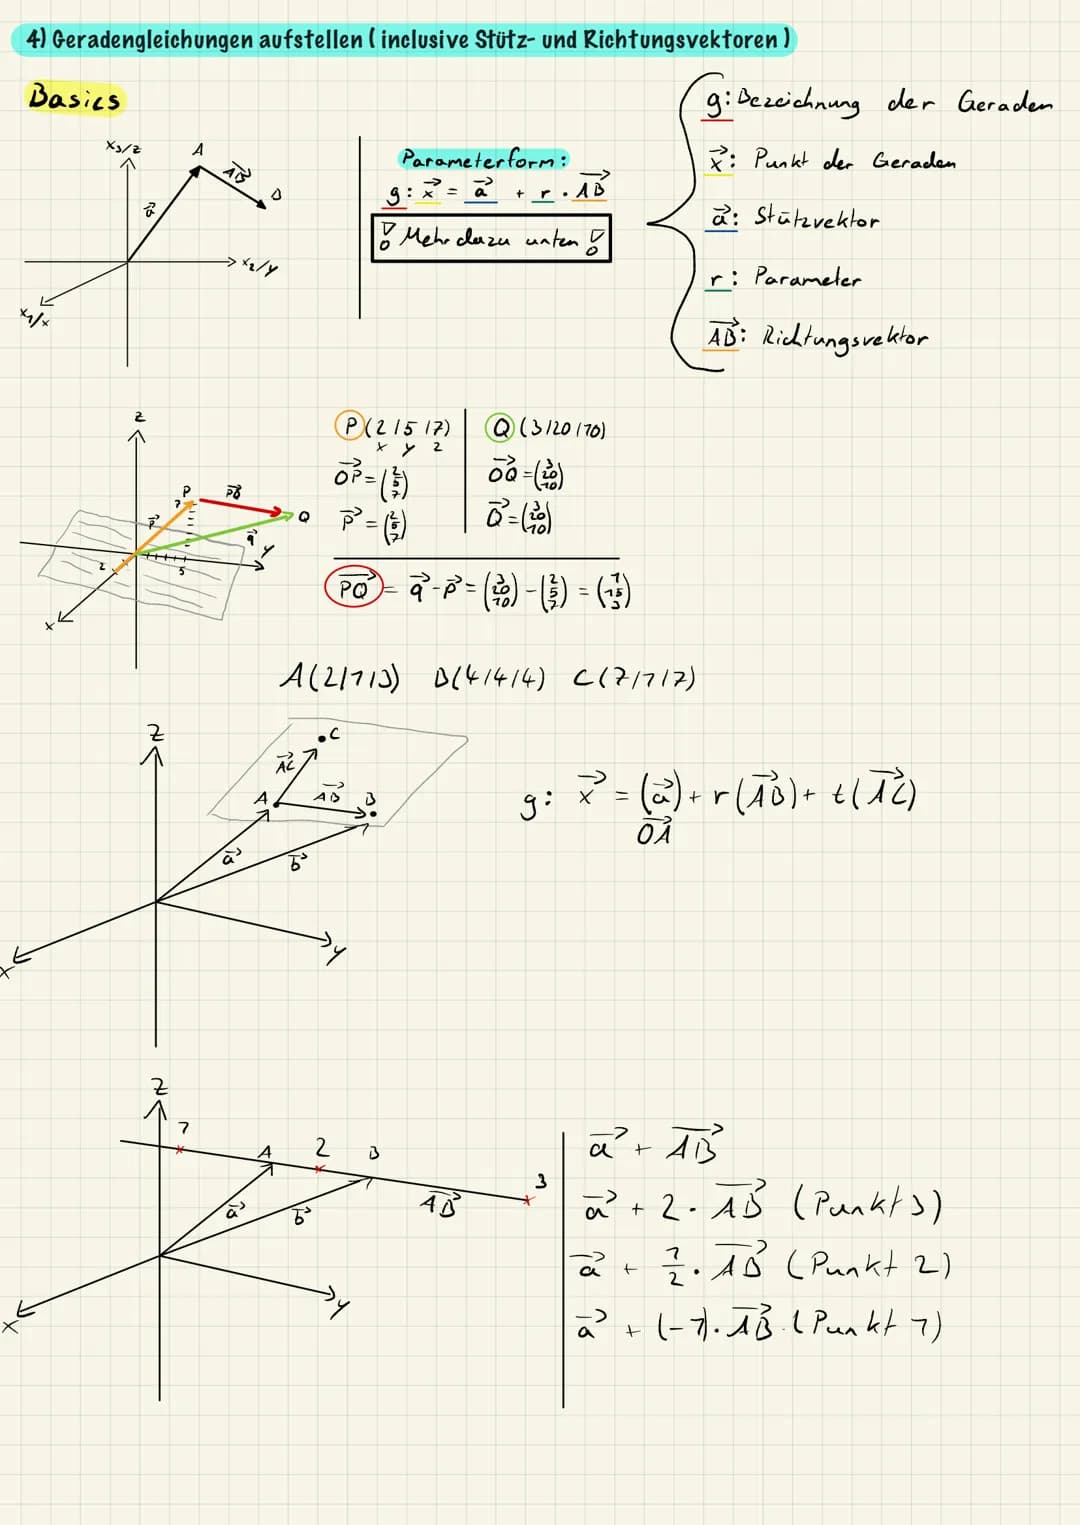 4) Geradengleichungen aufstellen ( inclusive Stütz- und Richtungsvektoren )
Basics
x₃/z
A
AB→
B
a→
x₂/y
x₁/x
Parameterform:
g: x→ = a→ + r · AB→
! Mehr dazu unten !
g: Bezeichnung der Geraden
x→: Punkt der Geraden
a→: Stützvektor
r: Parameter
AB→: Richtungsvektor
z
P
PQ→
7
p→
Q
q→
y
2
5
x
P(2/5/7)
x y z
OP→ = (2 5 7)
p→ = (2 5 7)
Q(3/20/10)
OQ→ = (3 20 10)
Q→ = (3 20 10)
PQ→ = q→ - p→ = (3 20 10) - (2 5 7) = (1 15 3)
A(2/1/3) B(4/4/4) C(7/1/7)
z
C
AC→
A
AB→
B
a→
b→
y
x
g: x→ = (a→) + r(AB→) + t(AC→)
OA→
z
1
A
2
B
3
AB→
a→
b→
y
x
a→ + AB→
a→ + 2 · AB→ (Punkt 3)
a→ + 1/2 · AB→ (Punkt 2)
a→ + (-1) · AB→ (Punkt 1)